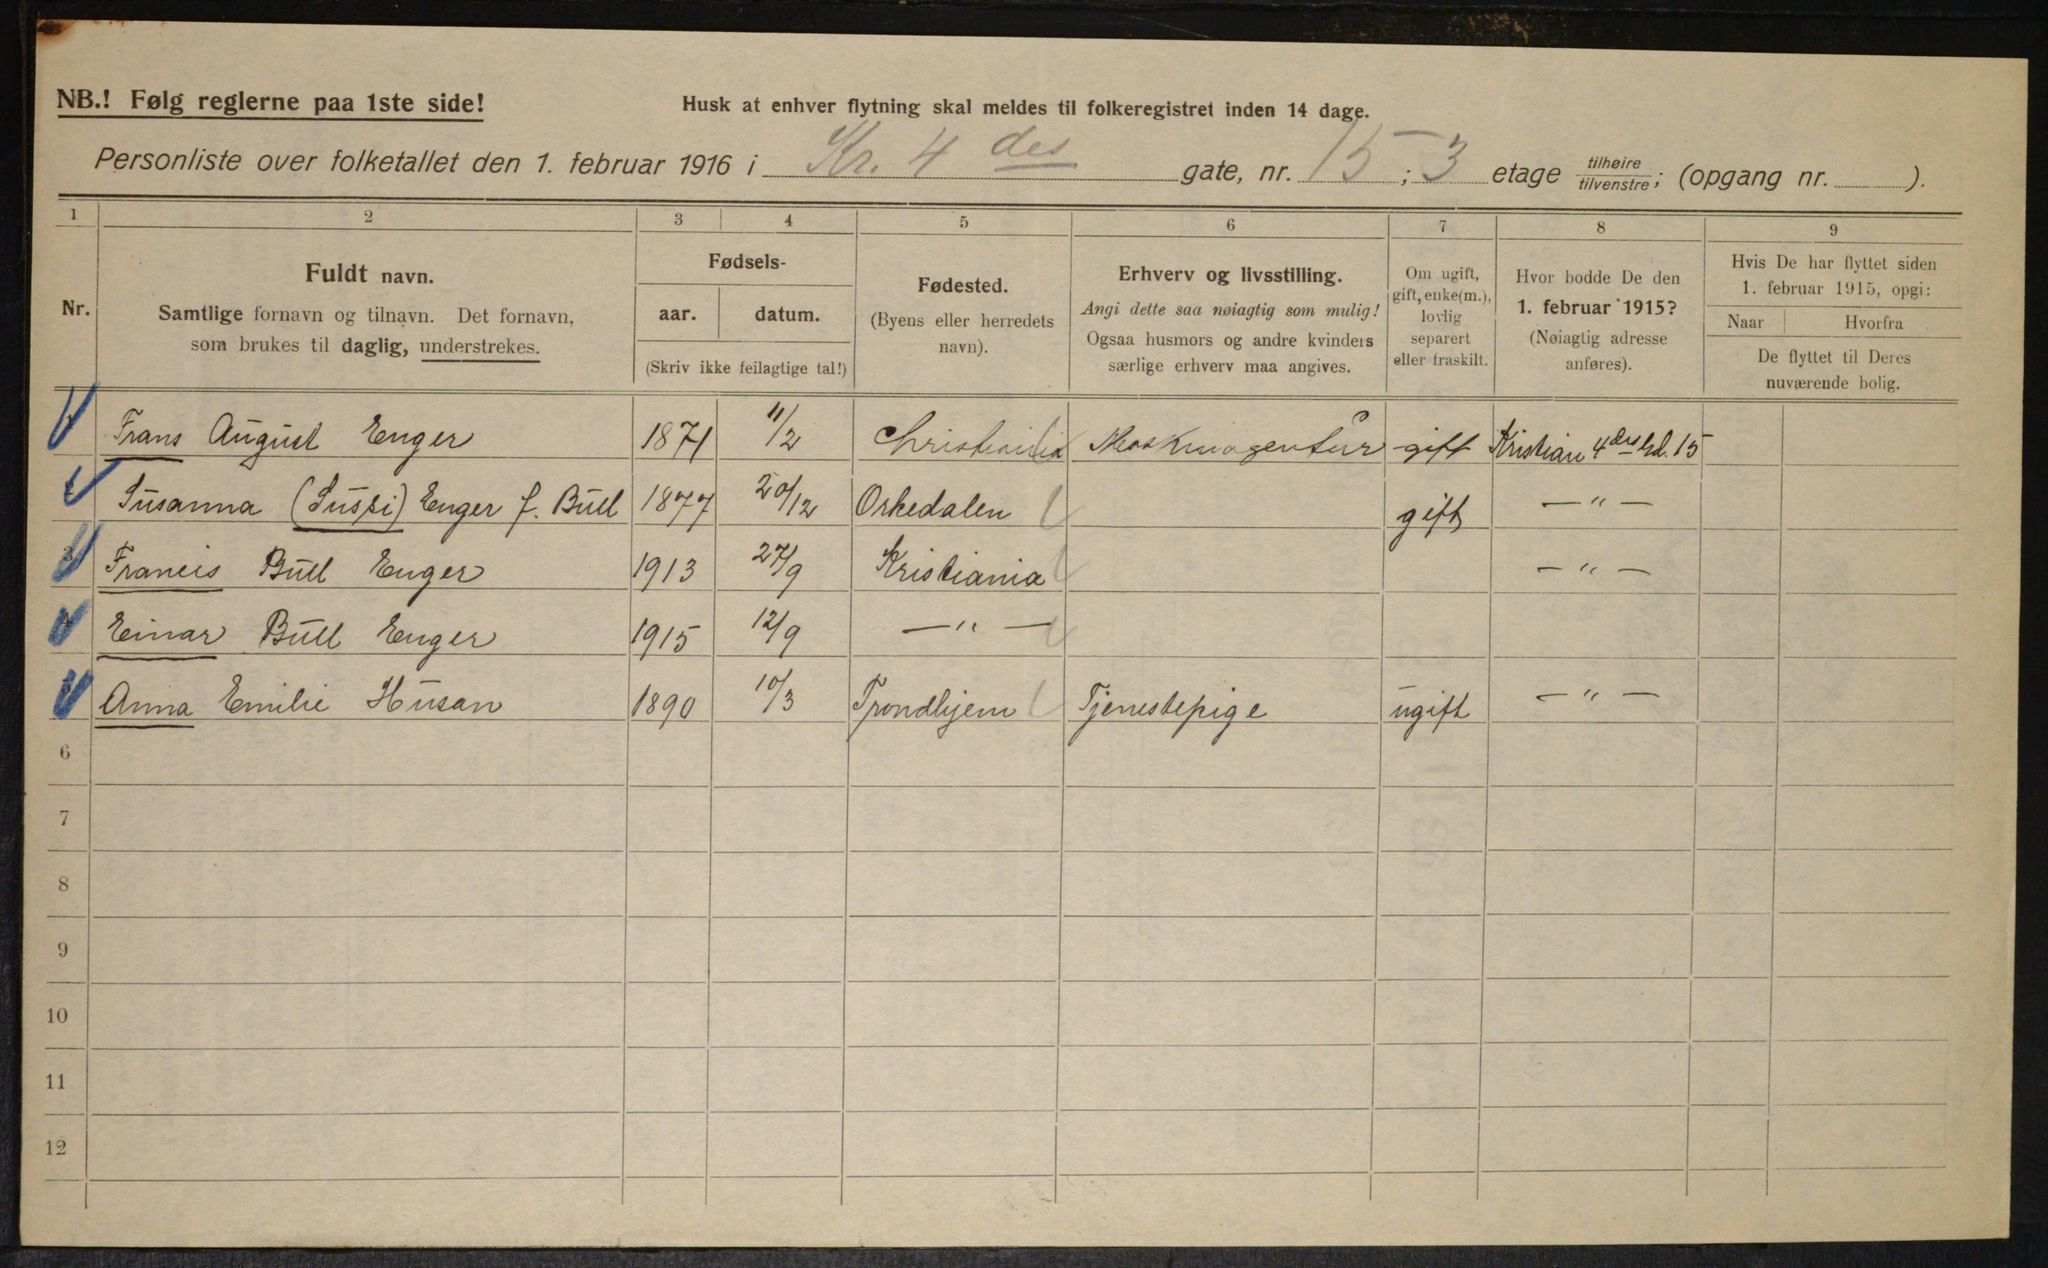 NB.! Følg reglerne paa 1ste side!
Husk at enhver flytning skal meldes til folkeregistret inden 14 dage.
Personliste over folketallet den 1. februar 1916 i Kr. 4 des gate, nr. 15 ; 3 etage tilhøire tilvenstre; (opgang nr. ).
1 2 3 4 5 6 7 8 9
Nr.
Fuldt navn.
Samtlige fornavn og tilnavn. Det fornavn,
som brukes til daglig, understrekes.
Fødsels-
aar. datum.
(Skriv ikke feilagtige tal!)
Fødested.
(Byens eller herredets
navn).
Erhverv og livsstilling.
Angi dette saa nøiagtig som mulig!
Ogsaa husmors og andre kvinders
særlige erhverv maa angives.
Om ugift,
gift, enke(m.),
lovlig
separert
eller fraskilt.
Hvor bodde De den
1. februar 1915?
(Nøiagtig adresse
anføres).
Hvis De har flyttet siden
1. februar 1915, opgi:
Naar Hvorfra
De flyttet til Deres
nuværende bolig.
Frans August Enger 1871 11/2 Christiania Maskinagentur gift Kristian 4 des Gd. 15
Susanna (Sussi) Enger f. Bull 1877 20/12 Orkedalen gift — " —
3 Francis Bull Enger 1913 27/9 Kristiania — " —
4 Einar Bull Enger 1915 12/9 — " —
5 Anna Emilie Husan 1890 10/3 Trondhjem Tjenestepige ugift — " —
6
7
8
9
10
11
12